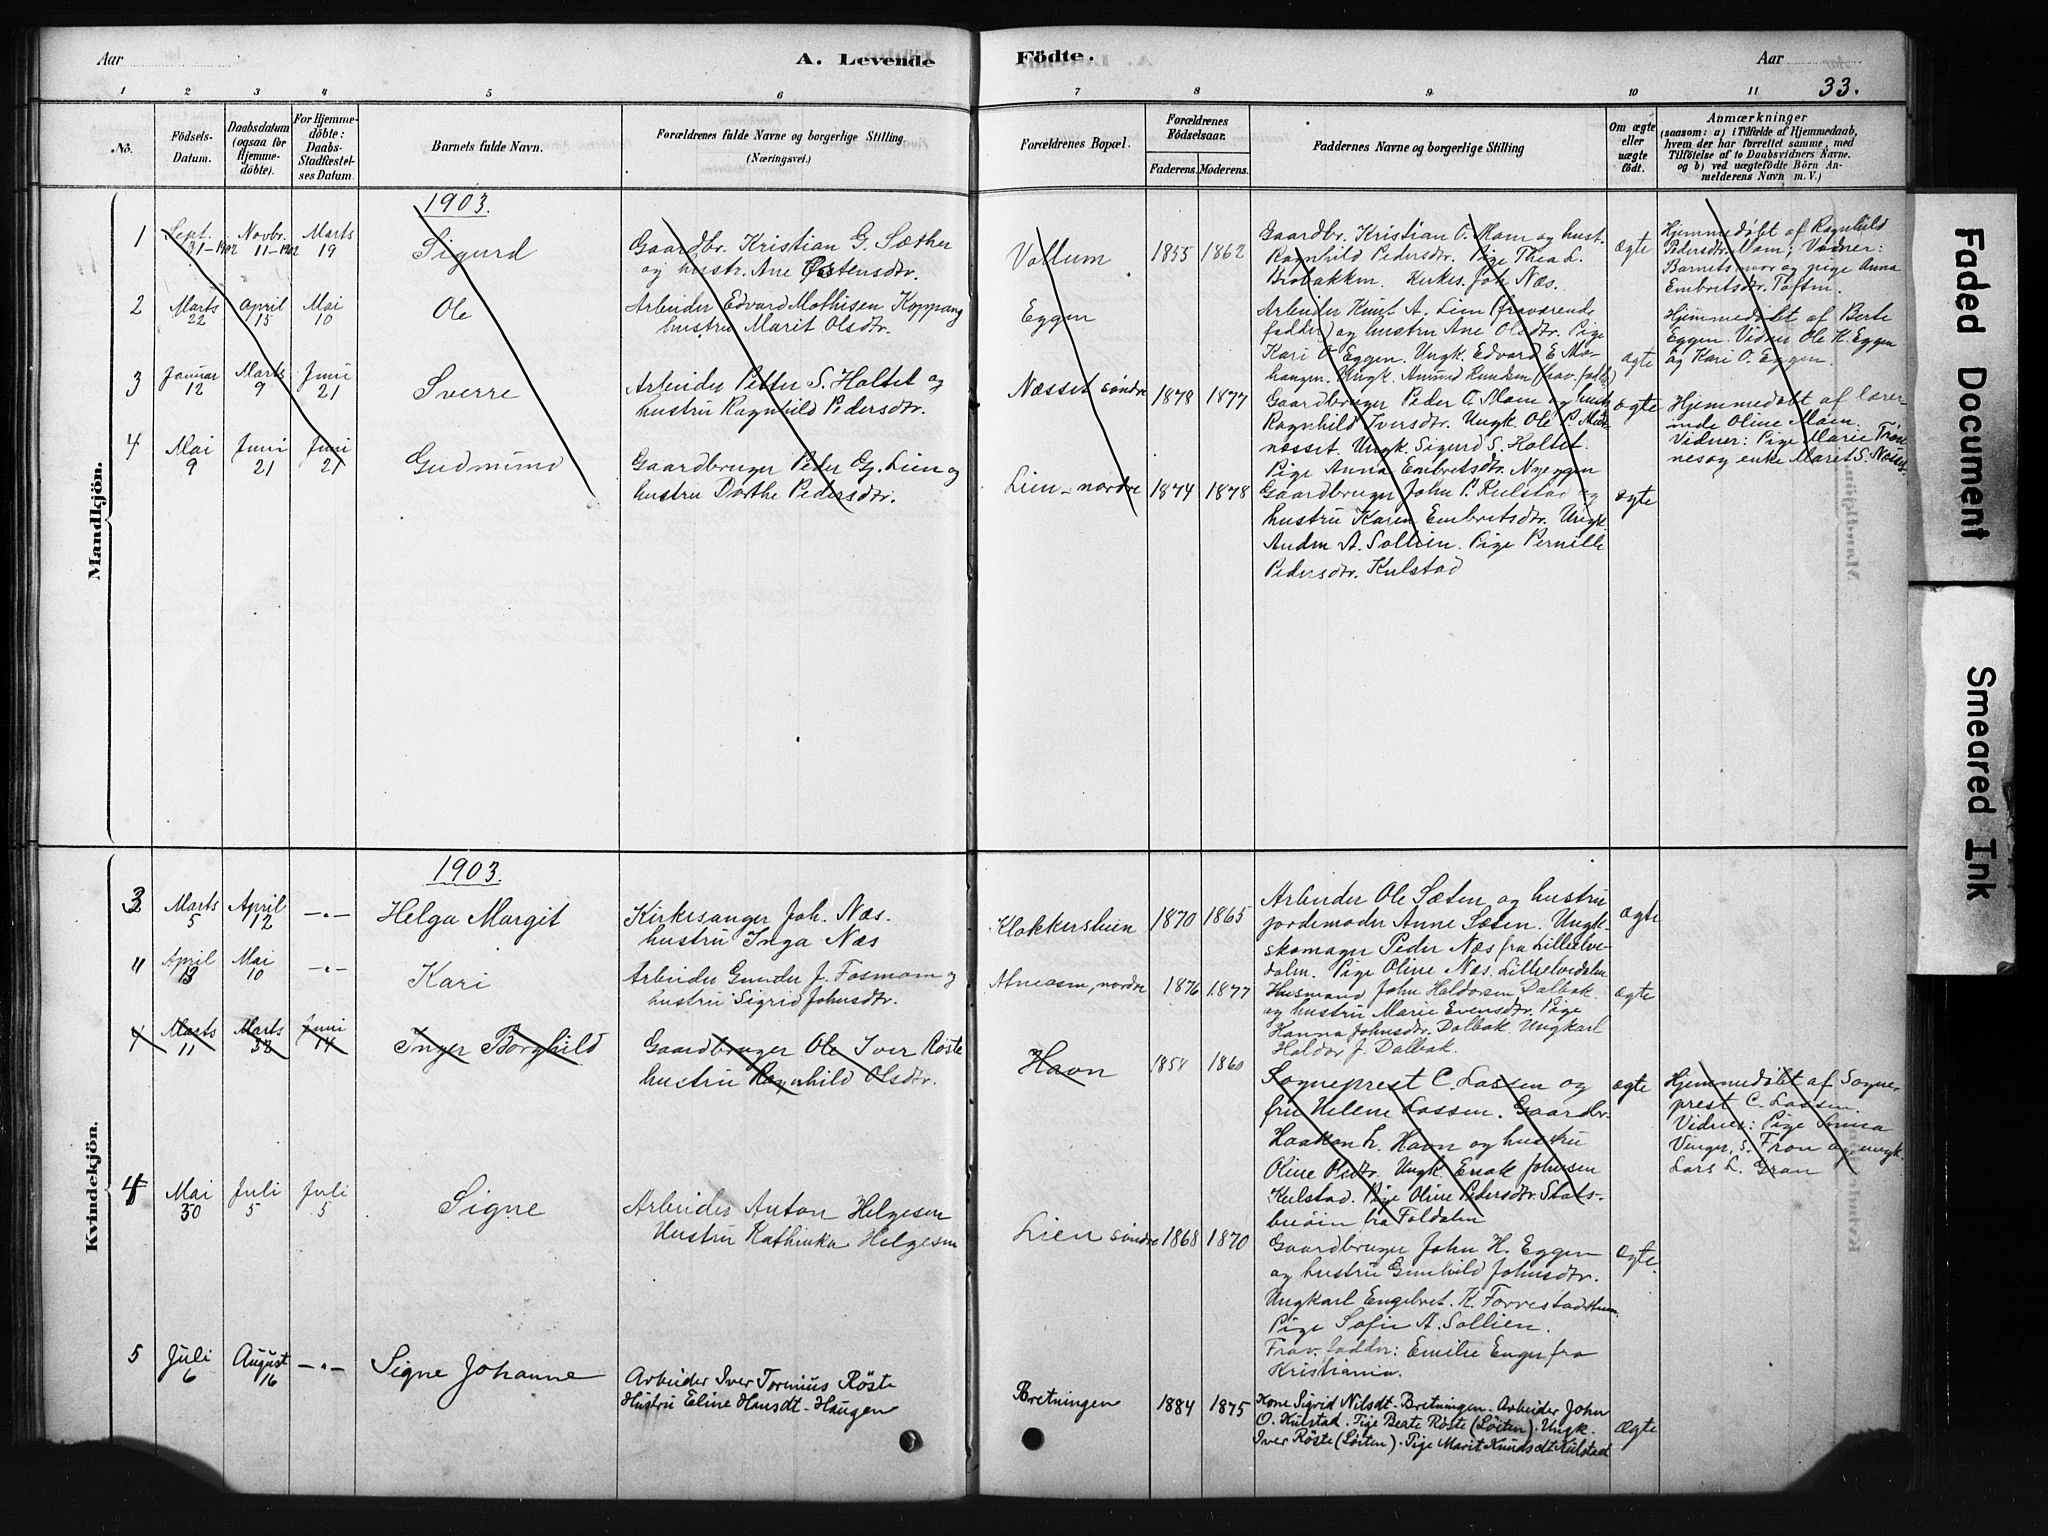 Aar
A. Levende
Födte.
Aar
33.
1 2 3 4 5 6 7 8 9 10 11
No.
Födsels-
Datum.
Daabsdatum
(ogsaa for
Hjemme-
döbte).
For Hjemme-
döbte:
Daabs-
Stadfæstel-
ses Datum.
Barnets fulde Navn.
Forældrenes fulde Navne og borgerlige Stilling.
(Næringsvei.)
Forældrenes Bopæl.
Forældrenes
Födselsaar.
Faderens. Moderens.
Faddernes Navne og borgerlige Stilling
Om ægte
eller
uægte
födt.
Anmærkninger
(saasom: a) i Tilfælde af Hjemmedaab,
hvem der har forrettet samme, med
Tilföielse af to Daabsvidners Navne.
og b) ved uægtefödte Börn An-
melderens Navn m. V.)
Mandkjön.
1903.
1
Sept.
31-1902
Novbr.
11-1902
Marts
19
Sigurd
Gaardbr. Kristian G. Sæther
og hustr. Ane Østensdtr.
Vollum
1855
1862
Gaardbr. Kristian O. Mom og hust.
Ragnhild Pedersdtr. Pige Thea L.
Brobakken. Kirkes. Joh. Næs.
ægte
Hjemmedøbt af Ragnhild
Pedersdtr. Mom; Vidner:
Barnets mor og pige Anna
Embretsdtr. Toften.
2
Marts
22
April
15
Mai
10
Ole
Arbeider Edvard Mathisen Koppang
hustru Marit Olsdtr.
Eggen
Arbeider Knut A. Lien (fraværende
fadder) og hustru Ane Olsdtr. Pige
Kari O. Eggen. Ungk. Edvard E. Mo-
hangen. Ungk. Amund Runden (frav. fadd)
ægte
Hjemmedøbt af Berte
Eggen. Vidner Ole K. Eggen
og Kari O. Eggen.
3
Januar
12
Marts
9
Juni
21
Sverre
Arbeider Petter S. Holtet og
hustru Ragnhild Pedersdtr.
Næsset søndre
1878
1877
Gaardbruger Peder O. Mom og hust.
Ragnhild Iversdtr. Ungk. Ole P. Midt-
næsset. Ungk. Sigurd S. Holtet.
Pige Anna Embretsdtr. Nyeggen
ægte
Hjemmedøbt af lærer-
inde Oline Moen.
Vidner: Pige Marie Trøn-
nes og enke Maret S. Næsset
4
Mai
9
Juni
21
Juni
21
Gudmund
Gaardbruger Peder G. Lien og
hustru Dorthe Pedersdtr.
Lien nordre
1874
1878
Gaardbruger John P. Kulstad og
hustru Karen Embretsdtr. Ungk.
Anders A. Sollien. Pige Pernille
Pedersdtr. Kulstad
ægte
Kvindekjön.
1903.
3
Marts
5
April
12
-"-
Helga Margit
Kirkesanger Joh. Næs.
hustru Inga Næs
Klokkersteien
1870
1865
Arbeider Ole Sæten og hustru
jordemoder Anne Sæten. Ungk.
skomager Peder Næs fra Lilleelve-
dalen. Pige Oline Næs. Lilleelvedalen
ægte
"
April
13
Mai
10
-"-
Kari
Arbeider Gunder J. Fosmom og
hustru Sigrid Johnsdtr.
Atneosen, nordre
1876
1877
Husmand John Haldorsen Dalbak.
og hustru Marie Evensdtr. Pige
Hanna Johnsdtr. Dalbak. Ungkarl
Haldor J. Dalbak.
ægte
Marts
11
Marts
Juni
14
Inger Borghild
Gaardbruger Ole Iver Røste
hustru Ragnhild Olsdtr.
Havn
1858
1860
Sogneprest C. Lassen og
fru Helene Lassen. Gaardbr.
Haakon L. Havn og hustru
Oline Olsdtr. Ungk. Enok Johnsen
Kulstad. Pige Oline Pedersdtr. Stats-
buøien fra Foldalen
ægte
Hjemmedøbt af Sogne-
prest C. Lassen.
Vidner: Pige Anna
Vinger, s. Fron og ungk.
Lars L. Gran
4
Mai
30
Juli
5
Juli
5
Signe
Arbeider Anton Helgesen
Hustru Kathinka Helgesen
Lien søndre
1868
1870
Gaardbruger John H. Eggen
og hustru Gunhild Johnsdtr.
Ungkarl Engebret. K. Forrestadstuen
Pige Sofie A. Sollien.
Frav. fadder: Emilie Enger fra
Kristiania.
ægte.
5
Juli
6
August
16
-"-
Signe Johanne
Arbeider Iver Torinius Røste
Hustru Eline Hansdt- Haugen
Bretningen
1884
1875
Kone Sigrid Nilsdt- Bretningen. Arbeider John
O. Kulstad. Pige Beate Røste (Løiten). Ungk.
Iver Røste (Løiten). Pige Marit Knudsdt Kulstad
Ægte
Faded Document
Smeared Ink